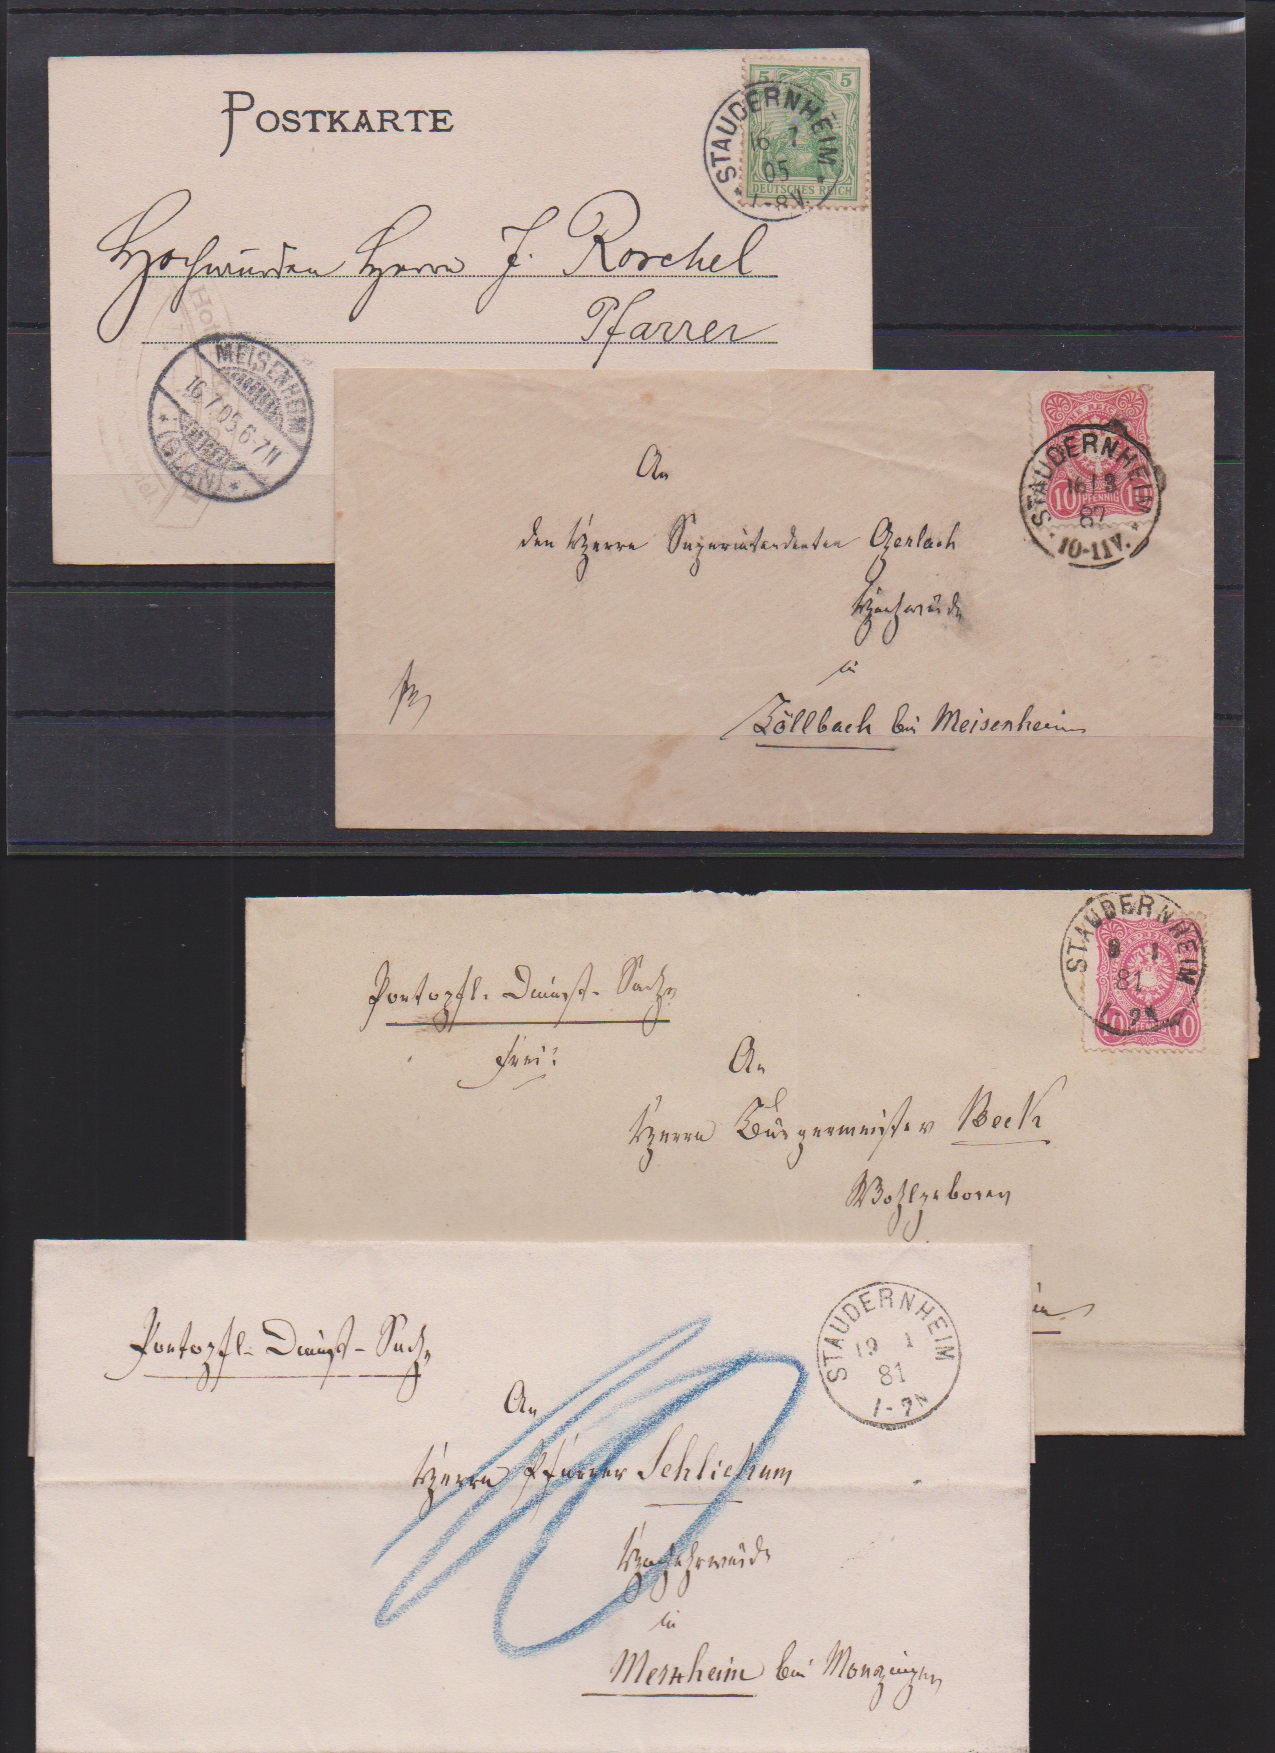 POSTKARTE
5 5
DEUTSCHES REICH
STAUDERNHEIM
16 7
05
7-8V.
Hochwürden Herrn J. Rorchel
Pfarrer
MEISENHEIM
16.7.05.6-7N
(GLAN)
10 PFENNIG
STAUDERNHEIM
16 3
87
10-11V.
An
den Herrn Superintendenten Gerlach
Hochwürden
in
bei Meisenheim
STAUDERNHEIM
81
10 PFENNIG 10
Portopfl. Dienst-Sache
Frei!
An
Herrn Bürgermeister Beck
Wohlgeboren
STAUDERNHEIM
19 1
81
1-2N
Portopfl. Dienst-Sache
10
An
Herrn Pfarrer Schlickum
Hochehrwürden
in
Merxheim bei Monzingen